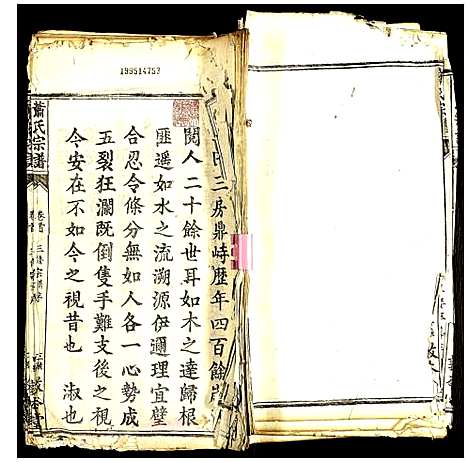 199514753
三房鼎峙歷年四百餘歲
閱人二十餘世耳如木之達歸根
匪遥如水之流溯源伊邇理宜璧
合忍令條分無如人各一心勢成
五裂狂瀾既倒隻手難支後之視
今安在不如今之視昔也　淑也
蕭氏宗譜
卷首
氏宗譜